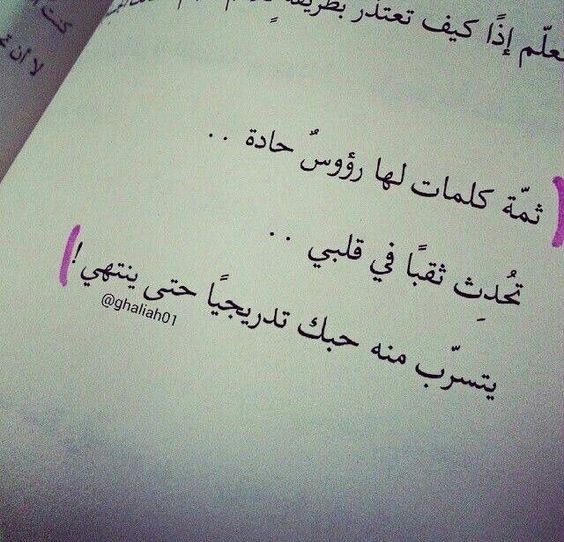 تعلّم إذًا كيف تعتذر بطريقة
ثمّة كلمات لها رؤوسٌ حادة . .
تُحدِث ثقبًا في قلبي . .
يتسرّب منه حبك تدريجيًا حتى ينتهي!
@ghaliah01
كنت
لا أن